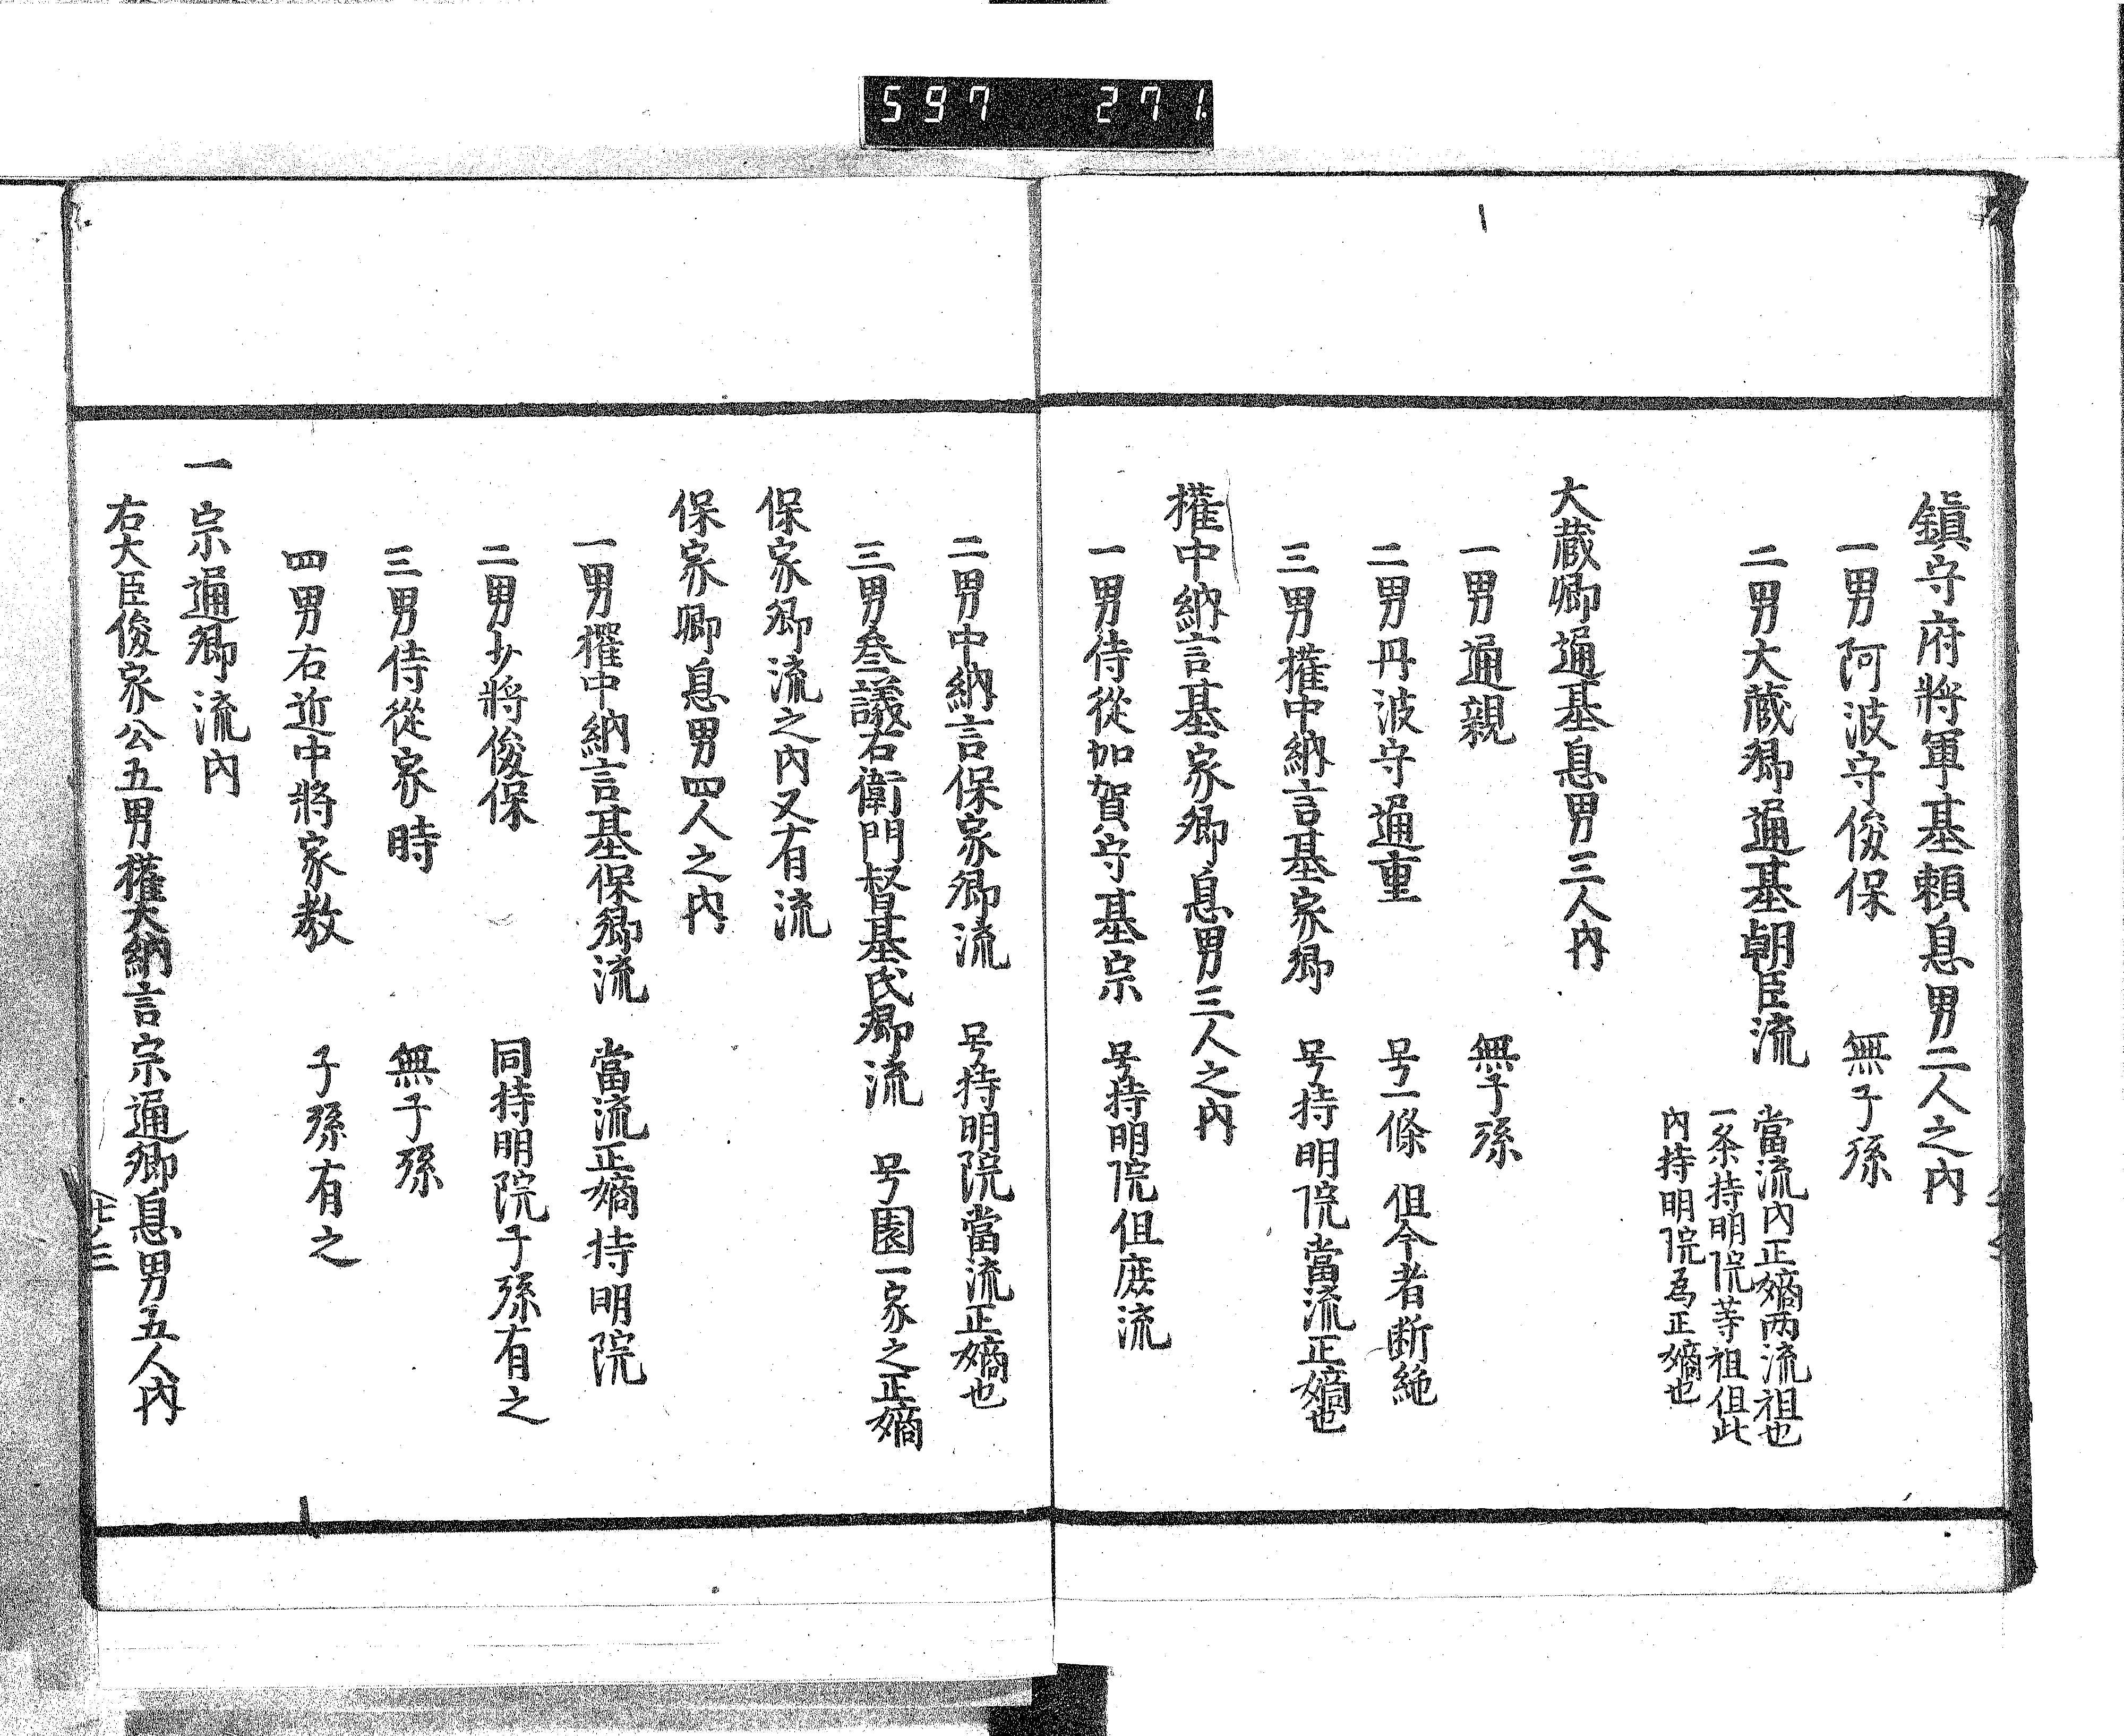 597 271
鎮守府将軍基頼息男二人之内
一男阿波守俊保 無子孫
二男大蔵卿通基朝臣流 當流内正嫡両流祖也
一条持明院等祖但此
内持明院為正嫡也
大蔵卿通基息男三人内
一男通親 無子孫
二男丹波守通重 号一條 但今者断絶
三男権中納言基家卿 号持明院當流正嫡也
権中納言基家卿息男三人之内
一男侍從加賀守基宗 号持明院但庶流
二男中納言保家卿流 号持明院當流正嫡也
三男叄議右衛門督基氏卿流 号園一家之正嫡
保家卿流之内又有流
保家卿息男四人之内
一男権中納言基保卿流 當流正嫡持明院
二男少將俊保 同持明院子孫有之
三男侍從家時 無子孫
四男右近中將家教 子孫有之
一宗通卿流内
右大臣俊家公五男権大納言宗通卿息男五人内